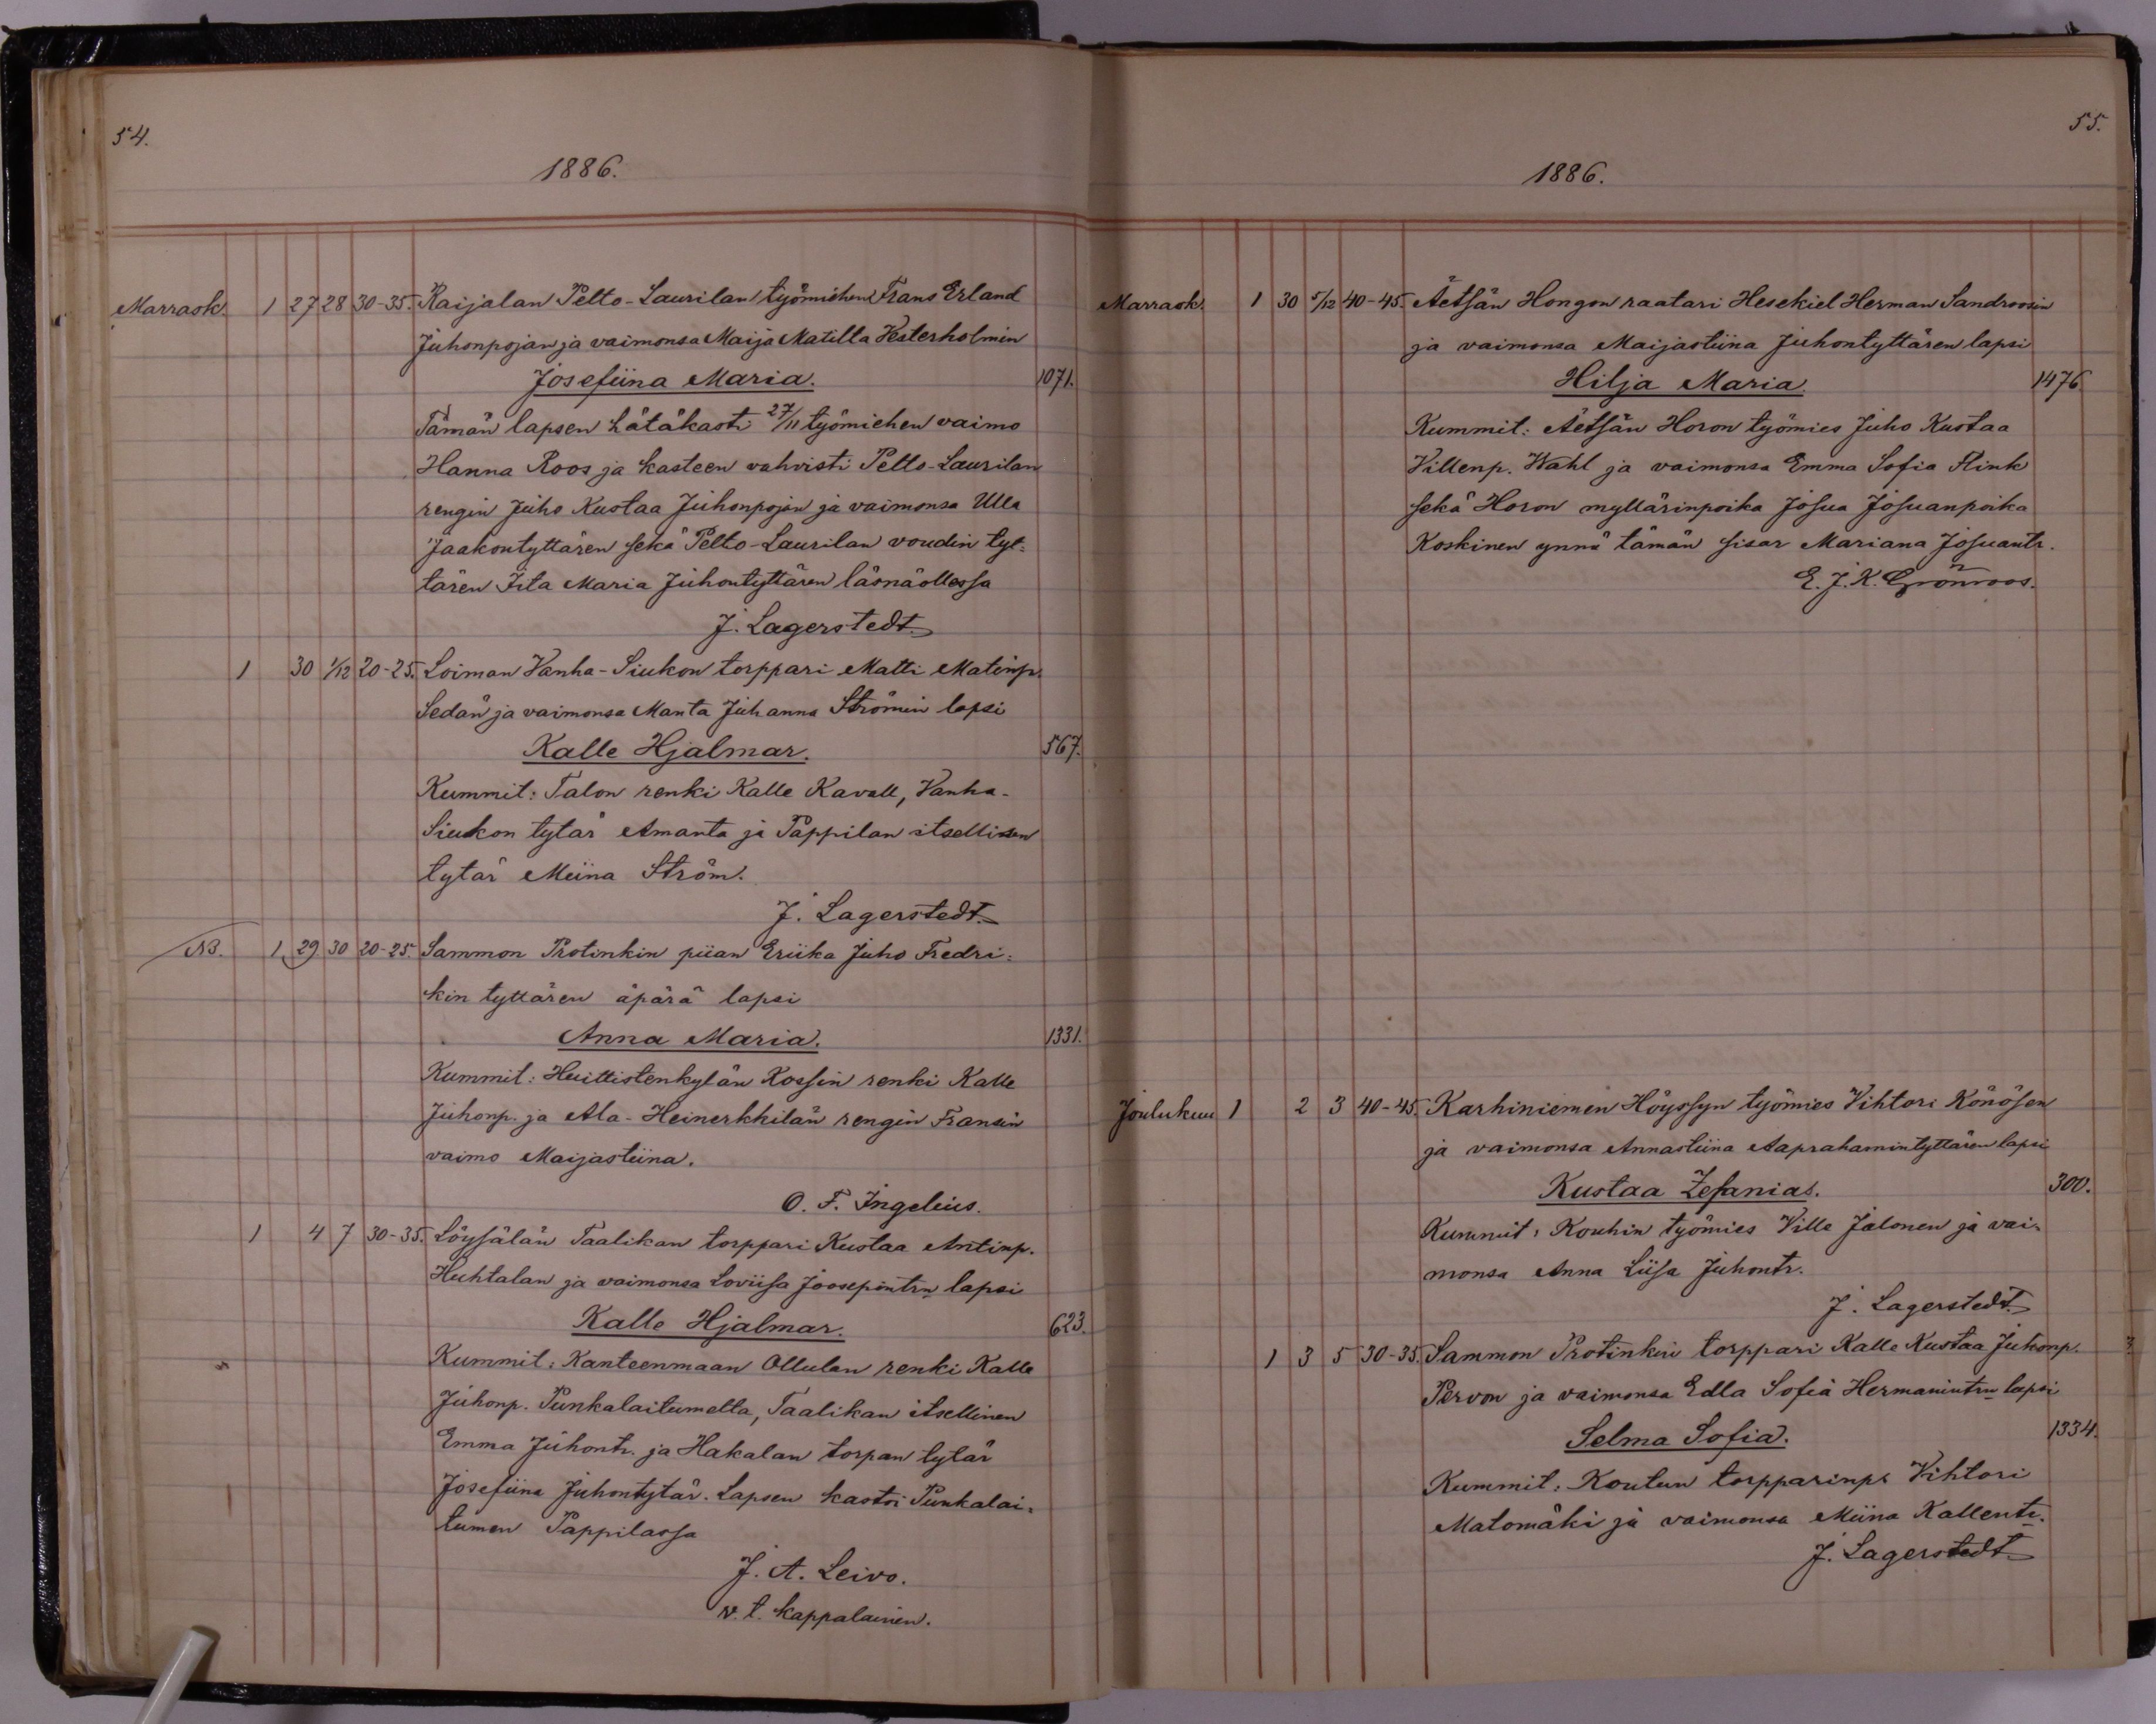 54.
1886.
Marrask. 1 27 28 30-35. Raijalan Pelto-Laurilan työmiehen Frans Erland
Juhonpojan ja vaimonsa Maija Matilta Vesterholmin
Josefiina Maria. 1071.
Tämän lapsen hätäkasti 27/11 työmiehen vaimo
Hanna Roos ja kasteen vahvisti Pelto-Laurilan
rengin Juho Kustaa Juhonpojan ja vaimonsa Ulla
Jaakontyttären sekä Pelto-Laurilan voudin tyt=
tären Iita Maria Juhontyttären läsnäollessa
J. Lagerstedt.
1 30 1/12 20-25. Loiman Vanha-Siukon torppari Matti Matinp.
Sedan ja vaimonsa Manta Juhanna Strömin lapsi
Kalle Hjalmar. 567.
Kummit: Talon renki Kalle Kavall, Vanha-
Siukon tytär Amanta ja Pappilan itsellisen
tytär Miina Ström.
J. Lagerstedt.
NB. 1 29 30 20-25. Sammon Protinkin piian Eriika Juho Fredri=
kin tyttären äpärä lapsi
Anna Maria. 1331.
Kummit: Huittistenkylän Kossin renki Kalle
Juhonp. ja Ala-Heinerkkilän rengin Fransin
vaimo Maijastiina.
O. F. Ingelius.
1 4 7 30-35. Löysälän Taalikan torppari Kustaa Antinp.
Huhtalan ja vaimonsa Loviisa Joosepintrn lapsi
Kalle Hjalmar. 623.
Kummit: Kanteenmaan Ollulan renki Kalle
Juhonp. Punkalaitumelta, Taalikan itsellinen
Emma Juhontr. ja Hakalan torpan tytär
Josefiina Juhontytär. Lapsen kastoi Punkalai=
tumen Pappilassa
J. A. Leivo.
v. t. kappalainen.
55.
1886.
Marrask. 1 30 5/12 40-45. Äetsän Hongon raatari Hesekiel Herman Sandroosin
ja vaimonsa Maijastiina Juhontyttären lapsi
Hilja Maria. 1476
Kummit: Äetsän Horon työmies Juho Kustaa
Villenp. Wahl ja vaimonsa Emma Sofia Flink
sekä Horon myllärinpoika Josua Josuanpoika
Koskinen ynnä tämän sisar Mariana Josuantr.
E. J. K. Grönroos.
Joulukuu 1 2 3 40-45. Karhiniemen Höyssyn työmies Vihtori Könösen
ja vaimonsa Annastiina Aaprahamintyttären lapsi
Kustaa Zefanias. 300.
Kummit: Kouhin työmies Ville Jalonen ja vai=
monsa Anna Liisa Juhontr.
J. Lagerstedt.
1 3 5 30-35. Sammon Protinkin torppari Kalle Kustaa Juhonp.
Pervon ja vaimonsa Edla Sofia Hermanintrn lapsi
Selma Sofia. 1334.
Kummit: Koutun torpparinp. Vihtori
Matomäki ja vaimonsa Miina Kallentr.
J. Lagerstedt.